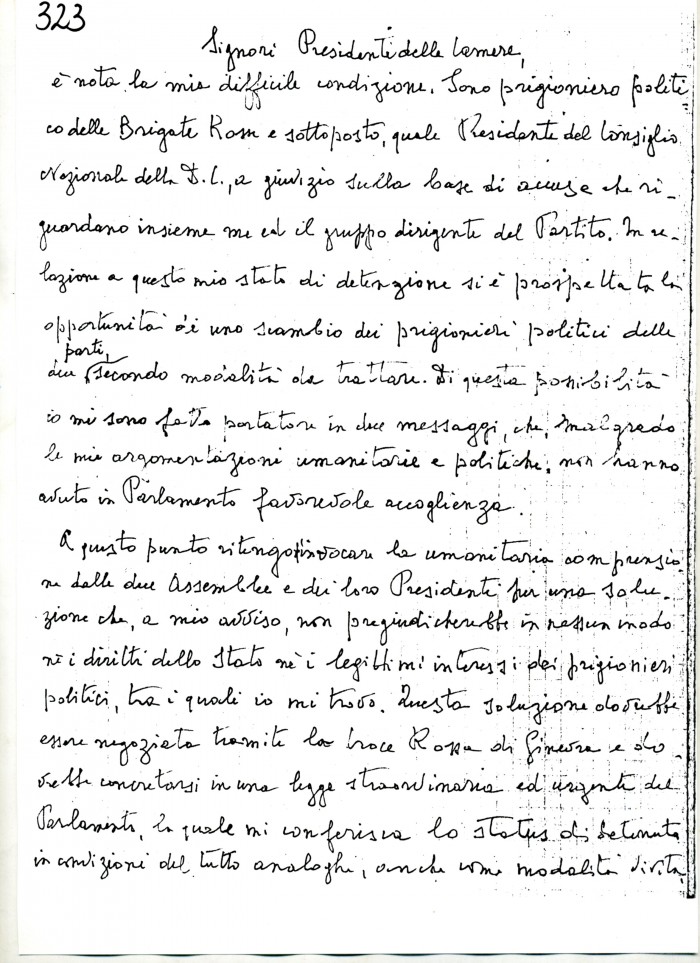 323
Signori Presidenti delle Camere,
è nota la mia difficile condizione. Sono prigioniero politi
co delle Brigate Rosse e sottoposto, quale Presidente del Consiglio
Nazionale della D.C., a giudizio sulla base di accuse che ri-
guardano insieme me ed il gruppo dirigente del Partito. In re-
lazione a questo mio stato di detenzione si è prospettata la
opportunità di uno scambio dei prigionieri politici delle
parti,
due secondo modalità da trattare. Di questa possibilità
io mi sono fatto portatore in due messaggi, che, malgrado
le mie argomentazioni umanitarie e politiche, non hanno
avuto in Parlamento favorevole accoglienza.
A questo punto ritengo invocare la umanitaria comprensio
ne delle due Assemblee e dei loro Presidenti per una solu-
zione che, a mio avviso, non pregiudicherebbe in nessun modo
nè i diritti dello Stato nè i legittimi interessi dei prigionieri
politici, tra i quali io mi trovo. Questa soluzione dovrebbe
essere negoziata tramite la Croce Rossa di Ginevra e do-
vrebbe concretarsi in una legge straordinaria ed urgente del
Parlamento, la quale mi conferisca lo status di detenuto
in condizioni del tutto analoghe, anche come modalità di vita,